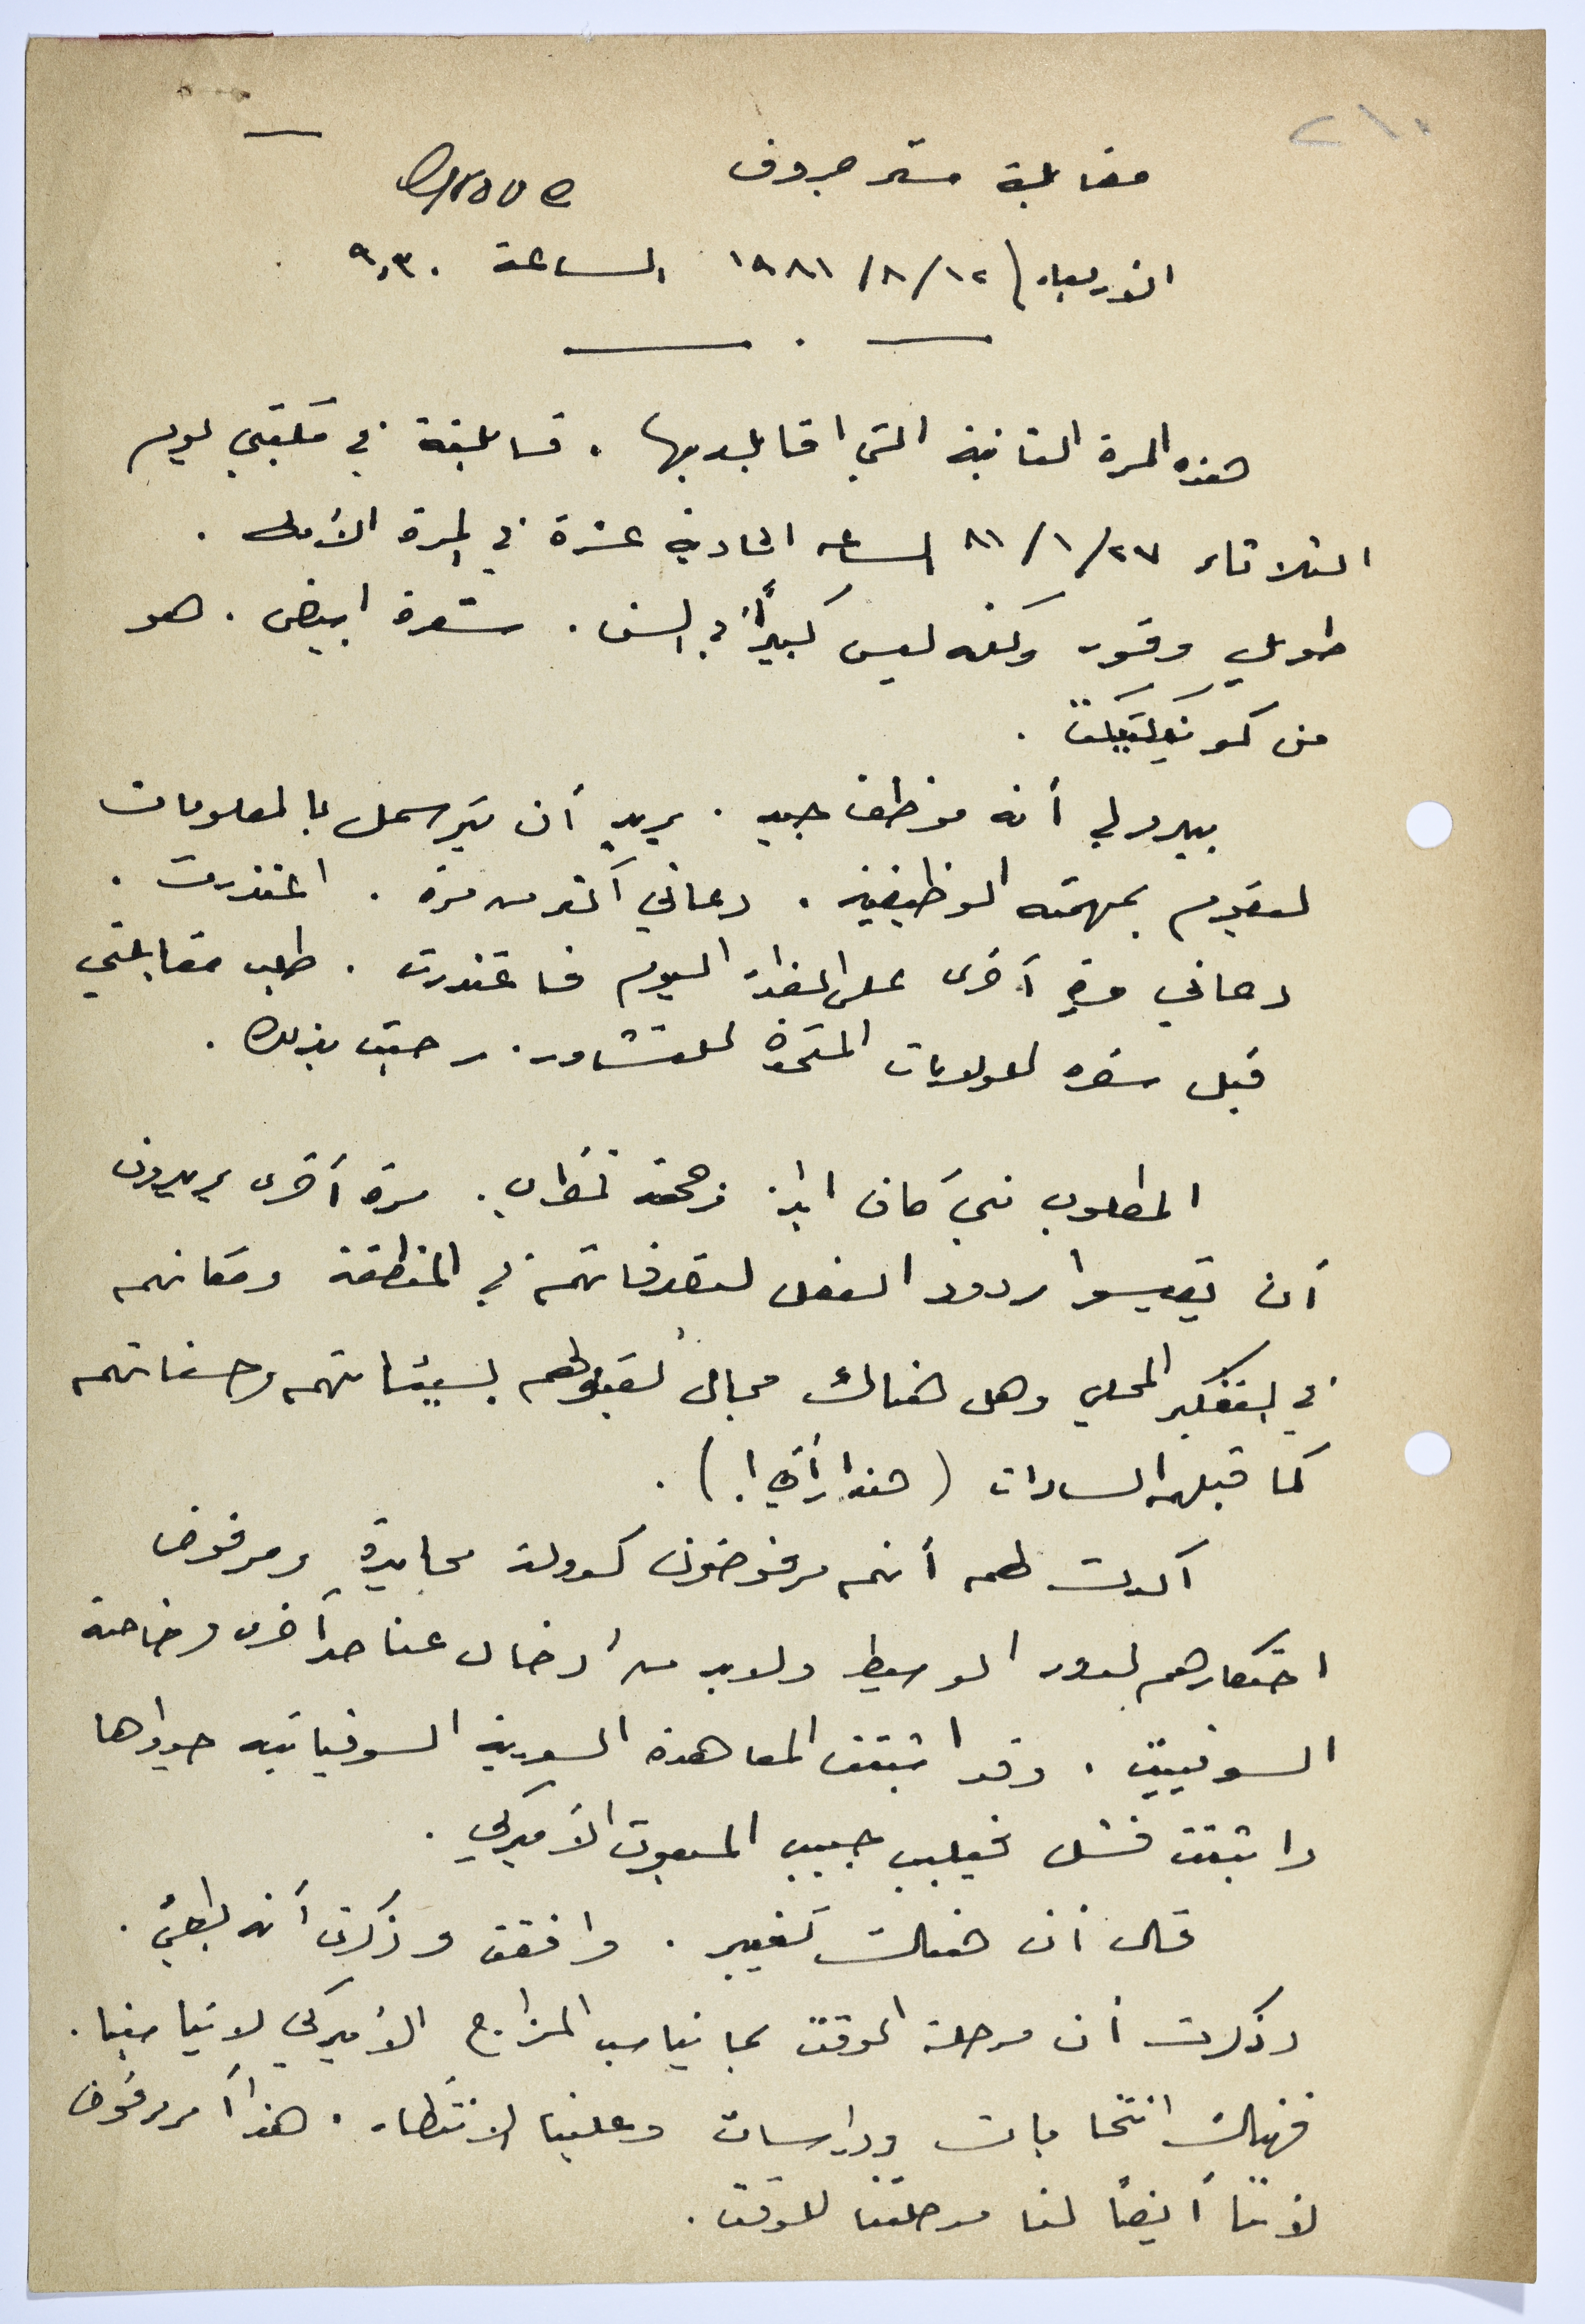 ٢١٠
مقابلة مستر جروف Grove
الأربعاء ١٢/٨/١٩٨١ الساعة ٩,٣٠
هذه المرة الثانية التي اقابله بها . قابلته في مكتبي يوم
الثلاثاء ٢٧/١/٨١ الساعه الحادية عشرة في المرة الأولى .
طويل وقور ولكنه ليس كبيراً في السن . شعره ابيض . هو
من كونيكتيكت .
يبدو لي أنه موظف جيد . يريد أن يتوسل بالمعلومات
ليقوم بمهمته الوظيفية . دعاني أكثر من مرة . اعتذرت .
دعاني مرة أخرى على الغداء اليوم فاعتذرت . طلب مقابلتي
قبل سفره للولايات المتحدة للتشاور . رحبت بذلك .
المطلوب مني كان وجهة نظري . مرة أخرى يريدون
أن يقيسوا ردود الفعل لتصرفاتهم في المنطقة ومكانهم
في التفكير المحلي وهل هناك مجال لقبولهم بسيئاتهم وحسناتهم
كما قبلهم السادات ( هذا رأيي ! ) .
أكدت لهم أنهم مرفوضون كدولة محايدة ومرفوض
احتكارهم لدور الوسيط ولابد من ادخال عناصر أخرى وخاصة
السوفييت . وقد اثبتت المعاهدة السورية السوفياتيه جدواها
واثبتت فشل فيليب حبيب المبعوث الأميركي .
قال أن هناك تغيير . وافقت وذكرت أنه بطيء .
وذكرت أن مرحلة الوقت بما يناسب المزاج الأميركي لا يناسبنا .
فهناك انتخابات ودراسات وعلينا الانتظار . هذا أمر مرفوض
لأننا أيضاً لنا مرحلتنا للوقت .